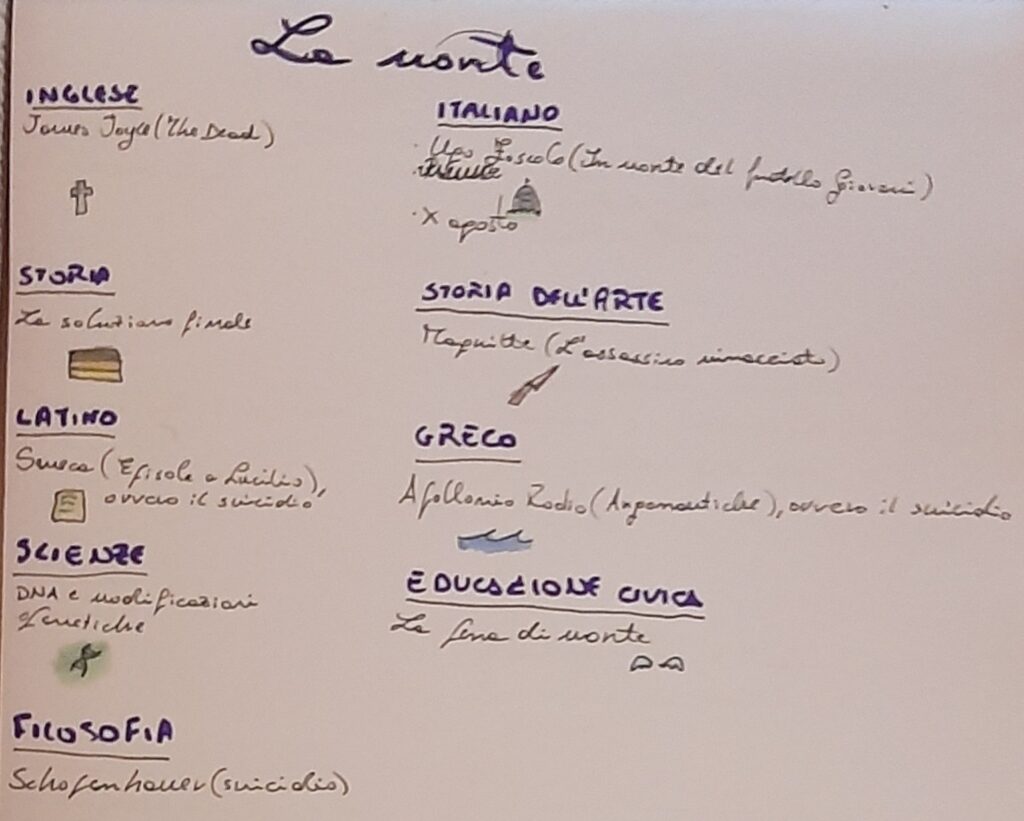 La morte
INGLESE
James Joyce (The Dead)
STORIA
La soluzione finale
LATINO
Seneca (Epistole a Lucilio),
ovvero il suicidio
SCIENZE
DNA e modificazioni
genetiche
FILOSOFIA
Schopenhauer (suicidio)
ITALIANO
· Ugo Foscolo (In morte del fratello Giovanni)
· X agosto
STORIA DELL'ARTE
Magritte (L'assassino minacciato)
GRECO
Apollonio Rodio (Argonautiche), ovvero il suicidio
EDUCAZIONE CIVICA
La pena di morte